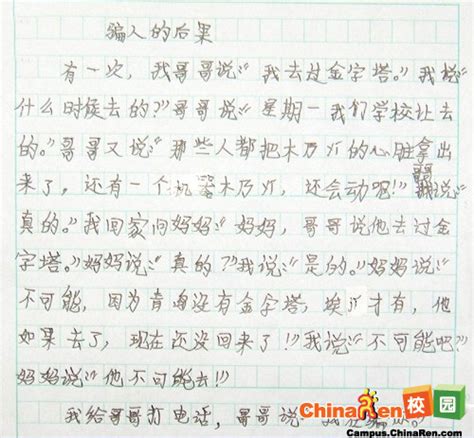 骗人的后果
有一次，我哥哥说：“我去过金字塔。”我说：“
什么时候去的？”哥哥说：“星期一我们学校让去
的。”哥哥又说：“那些人都把木乃灯的心脏拿出
来了，还有一个机器木乃灯，还会动呢！”我说：“
真的。”我回家问妈妈：“妈妈，哥哥说他去过金
字塔。”妈妈说：“真的？”我说：“是的。”妈妈说：“
不可能，因为青海没有金字塔，埃才有，他
如果去了，现在还没回来了！”我说：“不可能吧？”
妈妈说：“他不可能去！”
我给哥哥打电话，哥哥说
ChinaRen 校园
Campus.ChinaRen.com